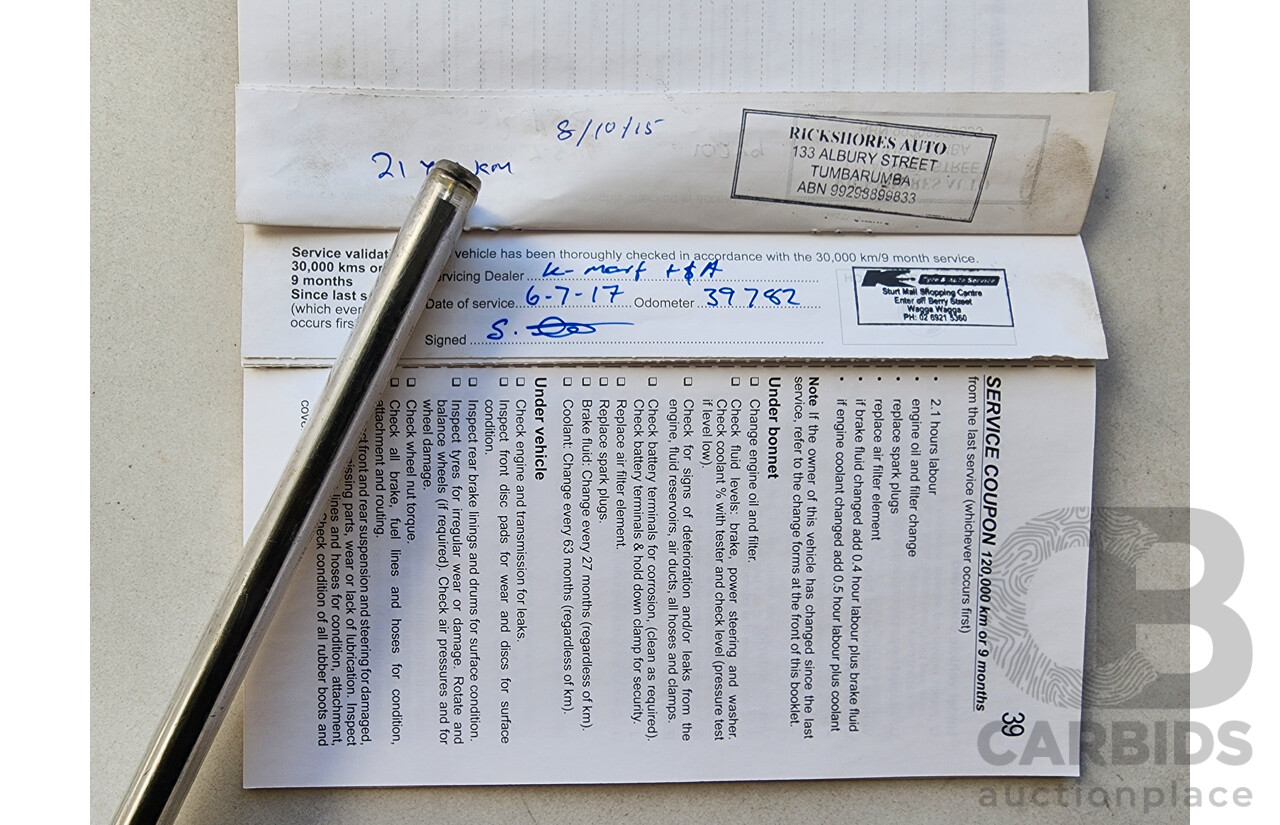 8/10/15
21 km
RICKSHORES AUTO
133 ALBURY STREET
TUMBARUMBA
ABN 99298899833
Service validat vehicle has been thoroughly checked in accordance with the 30,000 km/9 month service.
30,000 kms or
9 months
Since last s
(which ever
occurs firs
rvicing Dealer K-mart t&A
Date of service 6-7-17 Odometer 39782
Signed S.
K Tyre & Auto Service
Sturt Mall Shopping Centre
Enter off Berry Street
Wagga Wagga
PH: 02 6921 5360
SERVICE COUPON 120,000 km or 9 months
39
from the last service (whichever occurs first)
• 2.1 hours labour
• engine oil and filter change
• replace spark plugs
• replace air filter element
• if brake fluid changed add 0.4 hour labour plus brake fluid
• if engine coolant changed add 0.5 hour labour plus coolant
Note If the owner of this vehicle has changed since the last
service, refer to the change forms at the front of this booklet.
Under bonnet
❑ Change engine oil and filter.
❑ Check fluid levels: brake, power steering and washer.
Check coolant % with tester and check level (pressure test
if level low).
❑ Check for signs of deterioration and/or leaks from the
engine, fluid reservoirs, air ducts, all hoses and clamps.
❑ Check battery terminals for corrosion, (clean as required).
Check battery terminals & hold down clamp for security.
❑ Replace air filter element.
❑ Replace spark plugs.
❑ Brake fluid: Change every 27 months (regardless of km).
❑ Coolant: Change every 63 months (regardless of km).
Under vehicle
❑ Check engine and transmission for leaks.
❑ Inspect front disc pads for wear and discs for surface
condition.
❑ Inspect rear brake linings and drums for surface condition.
❑ Inspect tyres for irregular wear or damage. Rotate and
balance wheels (if required). Check air pressures and for
wheel damage.
❑ Check wheel nut torque.
❑ Check all brake, fuel lines and hoses for condition,
attachment and routing.
front and rear suspension and steering for damaged,
issing parts, wear or lack of lubrication. Inspect
lines and hoses for condition, attachment,
Check condition of all rubber boots and
cove
CARBIDS
auctionplace